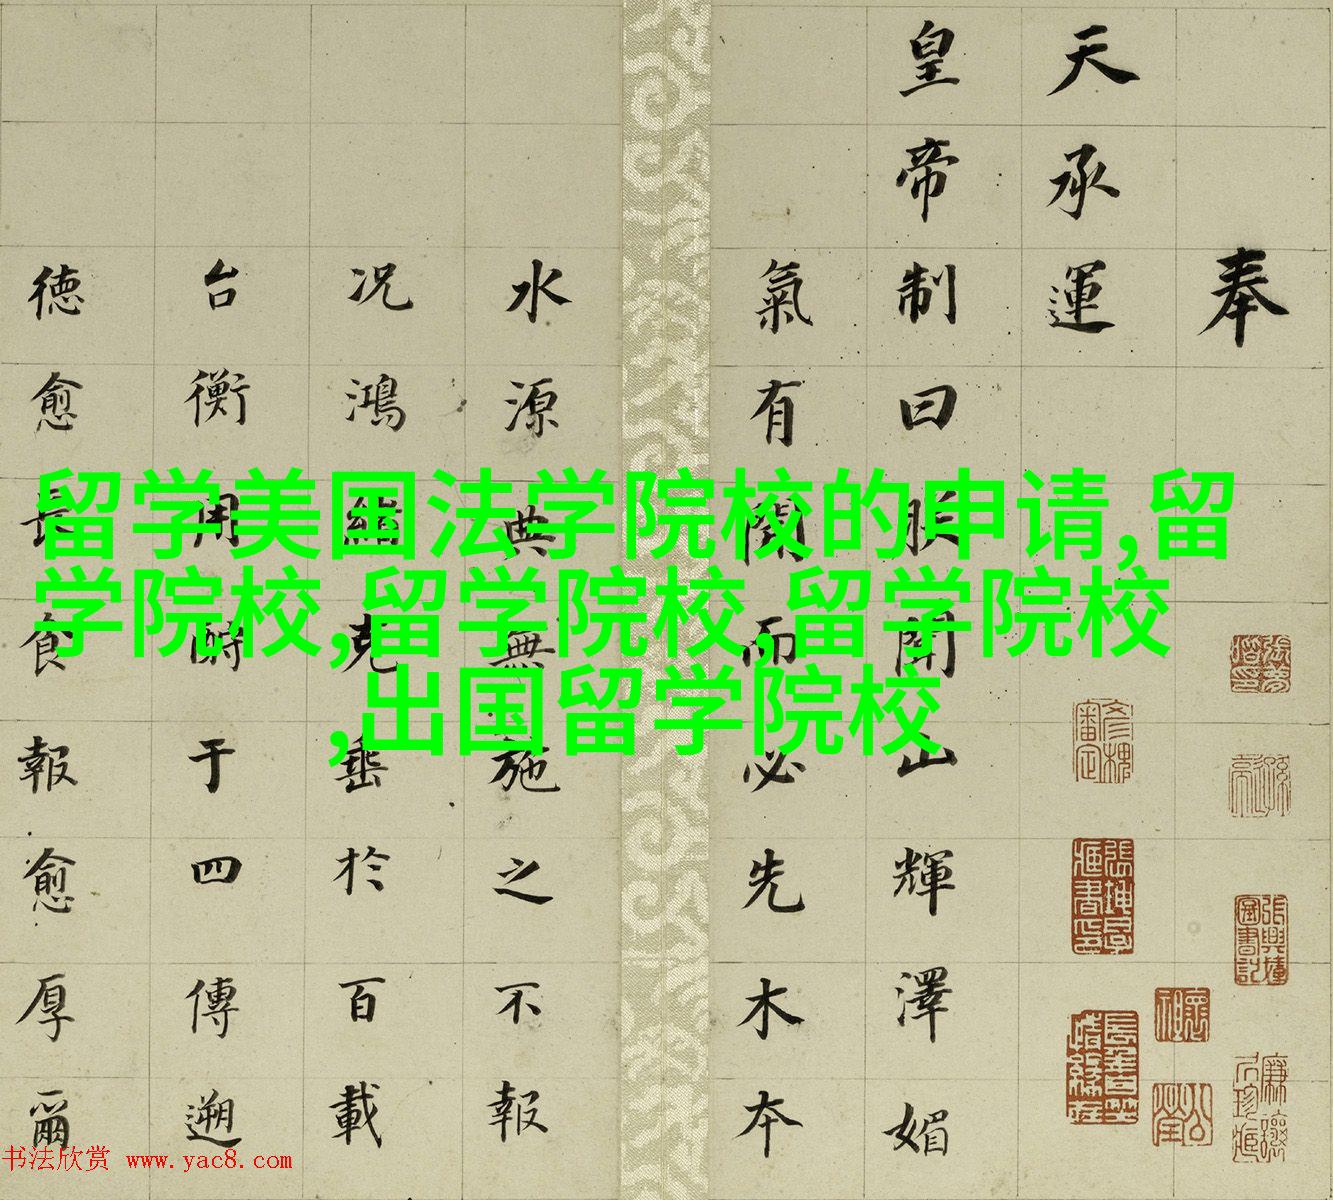 奉
天承運
皇帝制曰朕聞山輝澤媚
氣有開而必先木本
水源典無施之不報
况鴻緒克垂於百載
台衡用酬于四傳遡
德愈長食報愈厚爾
留学美国法学院校的申请,留
学院校,留学院校,留学院校
,出国留学院校
張珩私印
書法欣赏 www.yac8.com